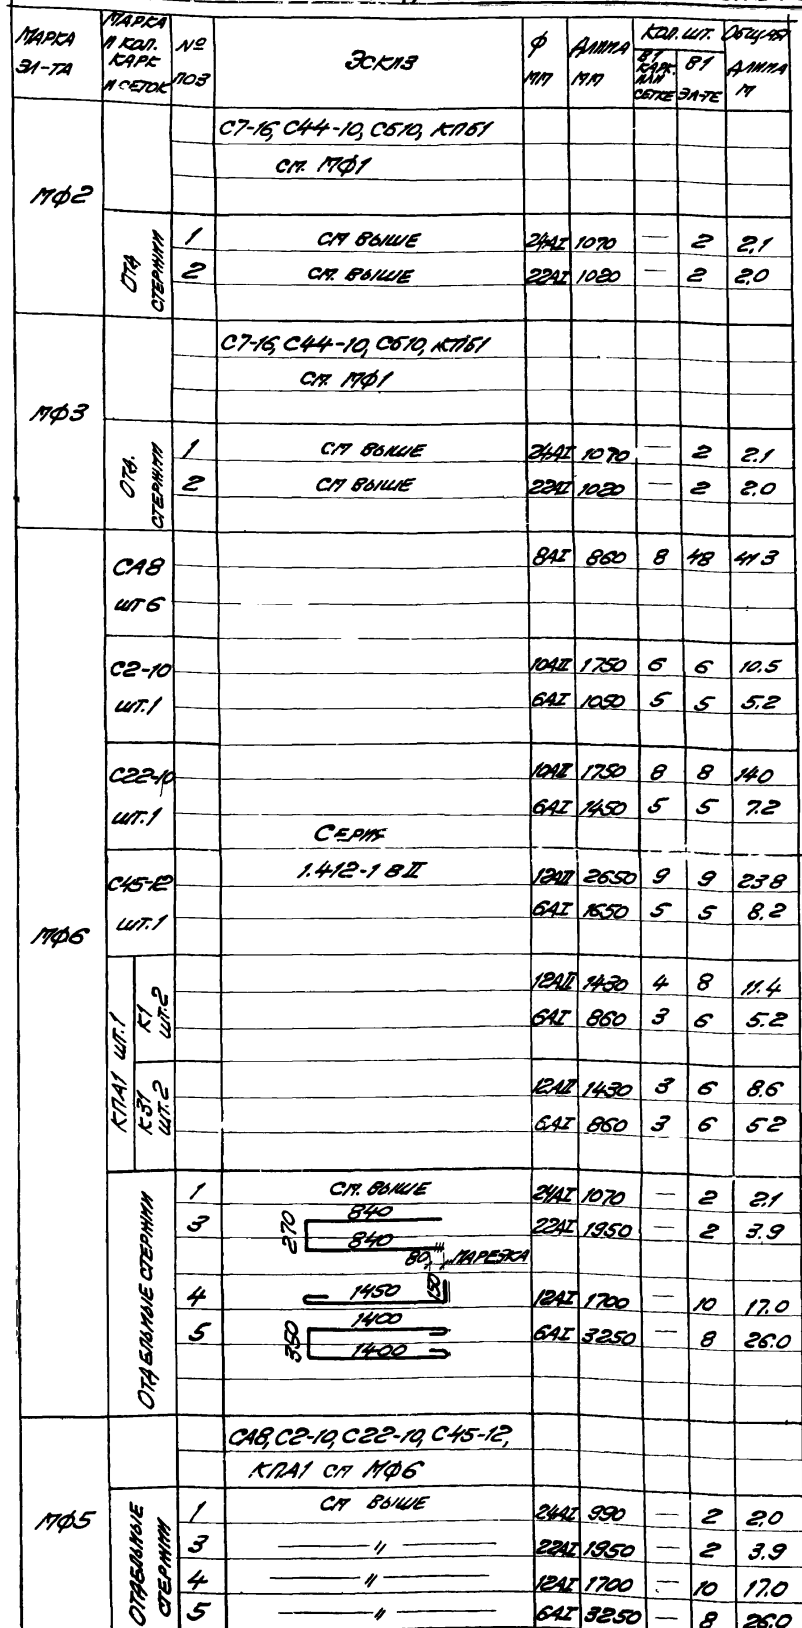 МАРКА ЭЛ-ТА | МАРКА И КОЛ. КАРК И СЕТОК | № ПОЗ | ЭСКИЗ | ф ММ | ДЛИНА ММ | КОЛ. ШТ. В1 КАРК. ИЛИ СЕТКЕ | В1 ЭЛ-ТЕ | ОБЩАЯ ДЛИНА М
МФ2
С7-16, С44-10, С610, КПБ1
см. МФ1
ОТД СТЕРЖНИ
1 СМ ВЫШЕ 24АI 1070 — 2 2,1
2 СМ. ВЫШЕ 22АI 1020 — 2 2,0
МФ3
С7-16, С44-10, С610, КПБ1
СМ. МФ1
ОТД. СТЕРЖНИ
1 СМ ВЫШЕ 24АI 1070 — 2 2.1
2 СМ ВЫШЕ 22АI 1020 — 2 2.0
МФ6
СА8 8АI 860 8 48 41.3
ШТ 6
С2-10 10АII 1750 6 6 10.5
ШТ.1 6АI 1050 5 5 5.2
С22-10 10АII 1750 8 8 14.0
ШТ.1 6АI 1450 5 5 7.2
СЕРИЯ
1.412-1 В II
С45-12 12АII 2650 9 9 23.8
ШТ.1 6АI 1650 5 5 8.2
КПА1 ШТ.1
К1 ШТ.2 12АII 1430 4 8 11.4
6АI 860 3 6 5.2
К31 ШТ.2 12АII 1430 3 6 8.6
6АI 860 3 6 5.2
ОТДЕЛЬНЫЕ СТЕРЖНИ
1 СМ. ВЫШЕ 24АI 1070 — 2 2.1
3 270 840 840 22АI 1950 — 2 3.9
80 НАРЕЗКА
4 1450 150 12АI 1700 — 10 17.0
5 350 1400 1400 6АI 3250 — 8 26.0
МФ5
СА8, С2-10, С22-10, С45-12,
КПА1 СМ МФ6
ОТДЕЛЬНЫЕ СТЕРЖНИ
1 СМ ВЫШЕ 24АI 990 — 2 2.0
3 — " — 22АI 1950 — 2 3.9
4 — " — 12АI 1700 — 10 17.0
5 — " — 6АI 3250 — 8 26.0